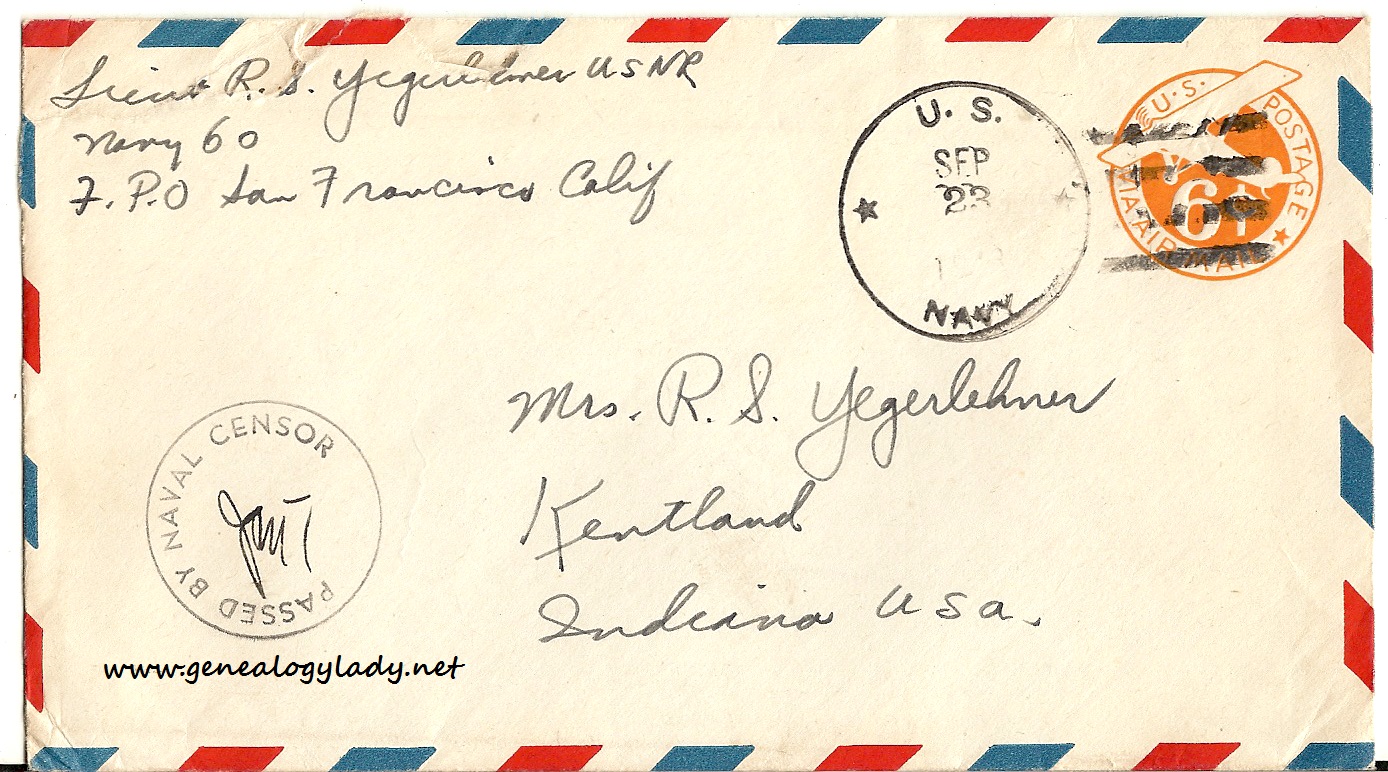 Lieut R. S. Yegerlehner USNR
Navy 60
F.P.O San Francisco Calif
U. S.
SEP
23
NAVY
U.S. POSTAGE
6¢
VIA AIR MAIL
Mrs. R. S. Yegerlehner
Kentland
Indiana USA.
PASSED BY NAVAL CENSOR
www.genealogylady.net